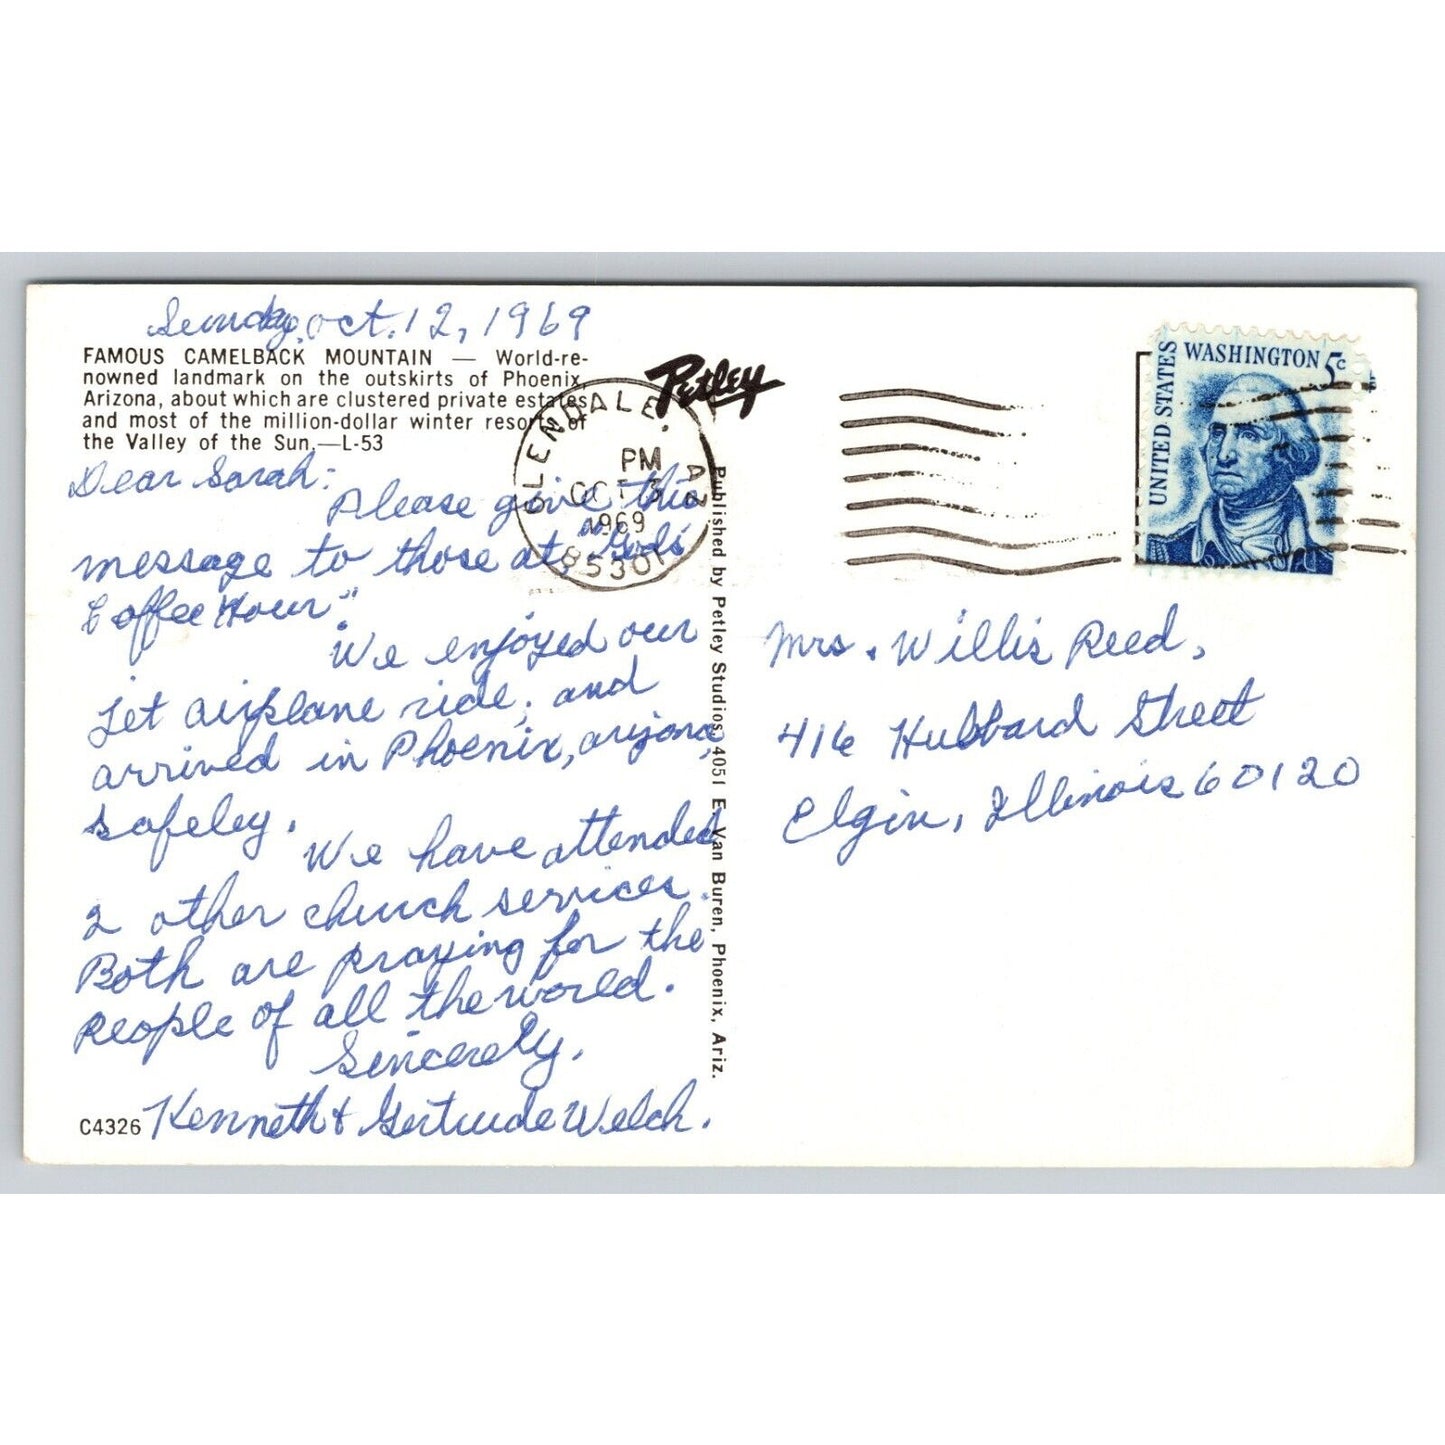 Sunday, Oct. 12, 1969
FAMOUS CAMELBACK MOUNTAIN — World-re-
nowned landmark on the outskirts of Phoenix,
Arizona, about which are clustered private estates
and most of the million-dollar winter resorts of
the Valley of the Sun.—L-53
Dear Sarah:
Please give this
message to those at "God's
Coffee Hour".
We enjoyed our
Jet airplane ride, and
arrived in Phoenix, arizona,
safeley.
We have attended
2 other church services.
Both are praying for the
people of all the world.
Sincerely,
Kenneth & Gertrude Welch.
C4326
Petley
GLENDALE, AZ
PM
OCT 13
1969
85301
Published by Petley Studios, 4051 E. Van Buren, Phoenix, Ariz.
UNITED STATES
WASHINGTON 5c
Mrs. Willis Reed,
416 Hubbard Street
Elgin, Illinois 60120